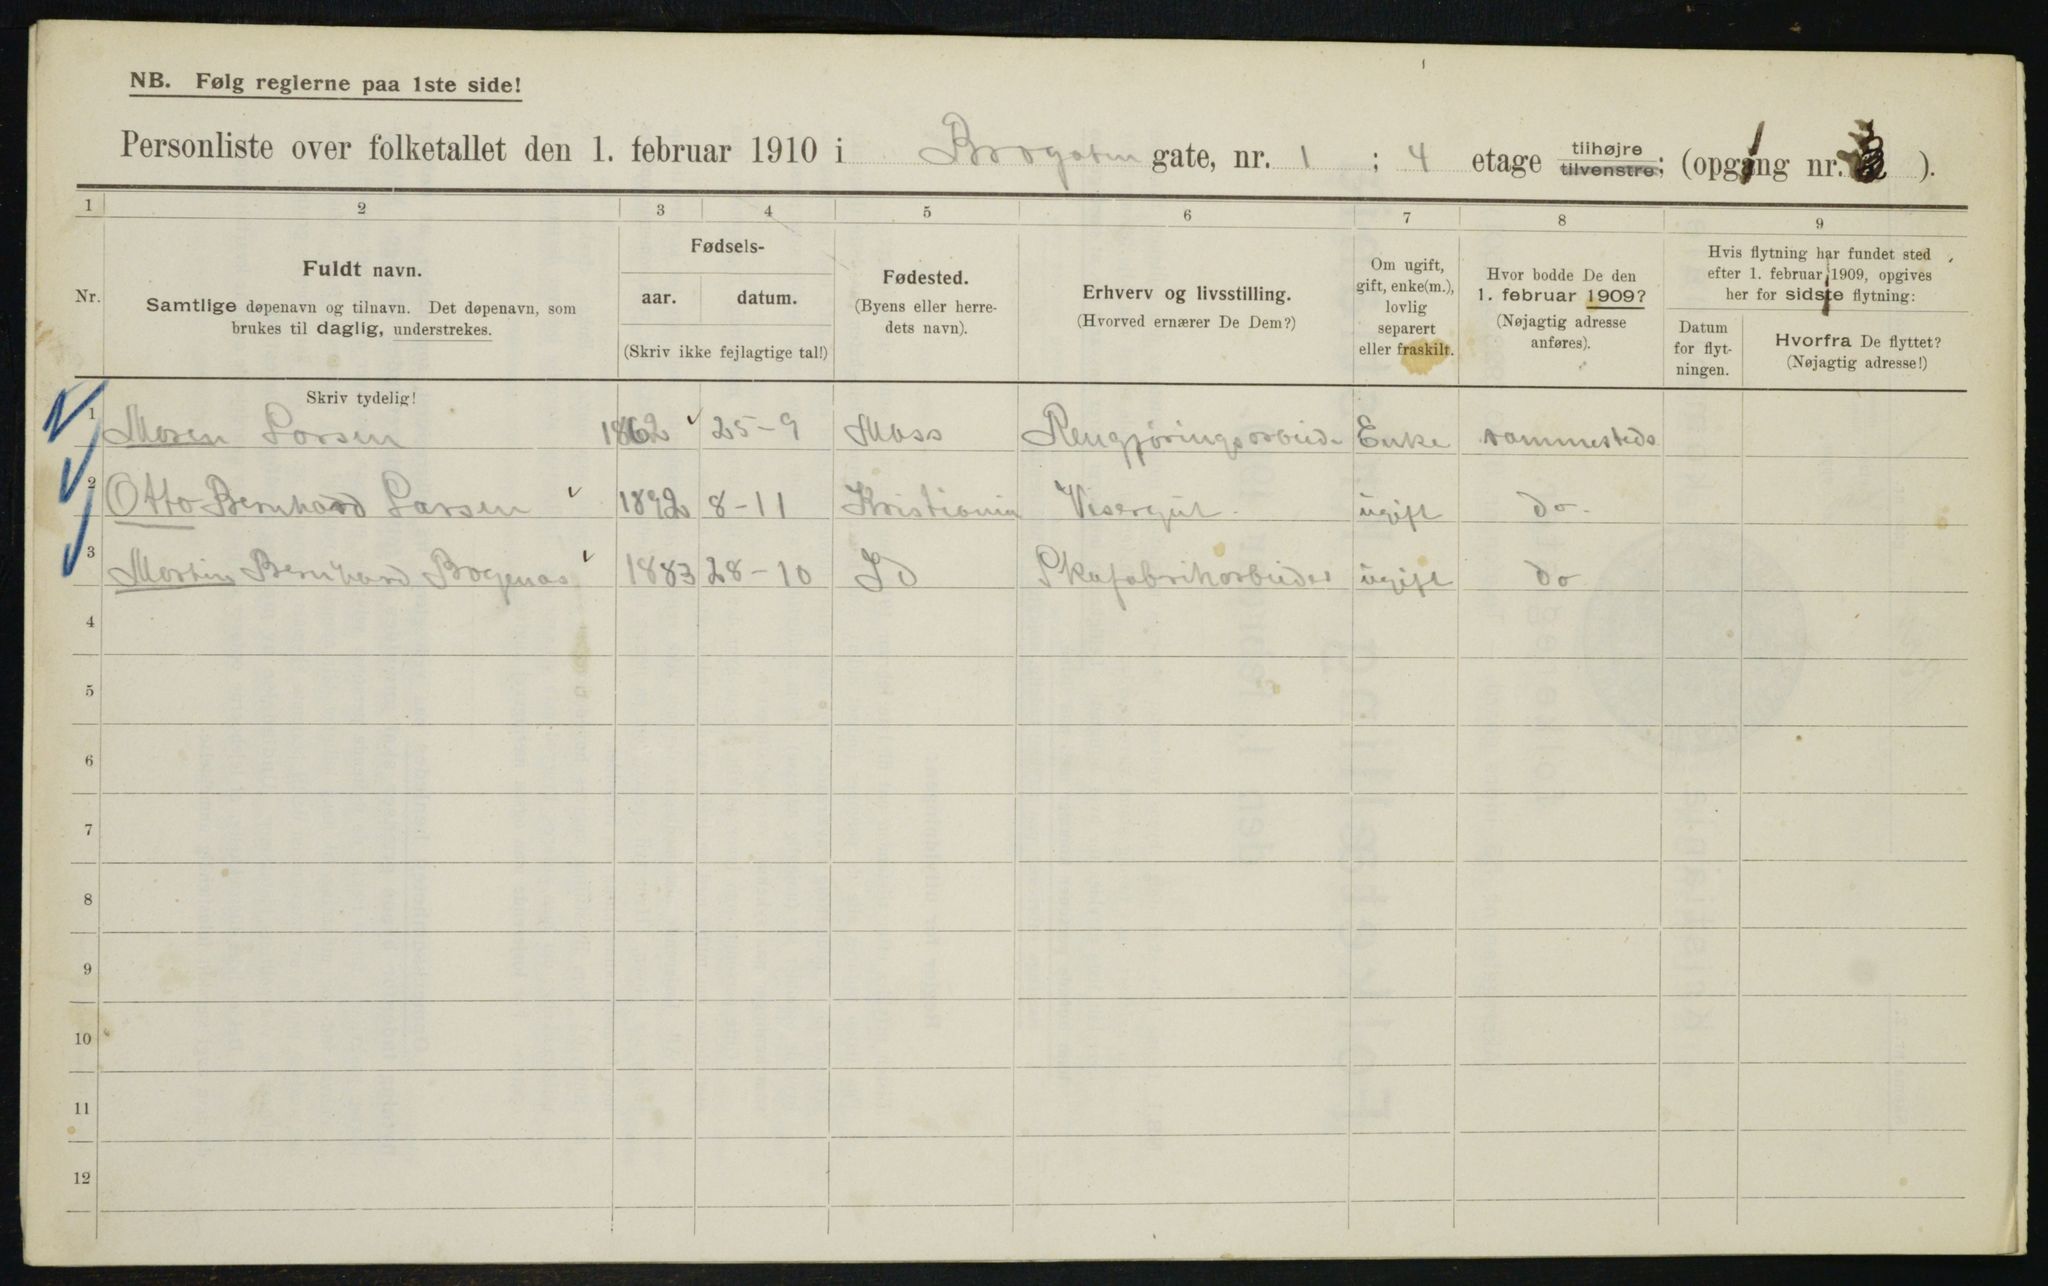 NB. Følg reglerne paa 1ste side!
Personliste over folketallet den 1. februar 1910 i Brogaten gate, nr. 1 ; 4 etage tilhøjre tilvenstre; (opgang nr. ).
1 2 3 4 5 6 7 8 9
Nr.
Fuldt navn.
Samtlige døpenavn og tilnavn. Det døpenavn, som
brukes til daglig, understrekes.
Fødsels-
aar. datum.
(Skriv ikke fejlagtige tal!)
Fødested.
(Byens eller herre-
dets navn).
Erhverv og livsstilling.
(Hvorved ernærer De Dem?)
Om ugift,
gift, enke(m.),
lovlig
separert
eller fraskilt.
Hvor bodde De den
1. februar 1909?
(Nøjagtig adresse
anføres).
Hvis flytning har fundet sted
efter 1. februar 1909, opgives
her for sidste flytning:
Datum
for flyt-
ningen.
Hvorfra De flyttet?
(Nøjagtig adresse!)
Skriv tydelig!
1 Maren Larsen 1862 25-9 Moss Rengjøringsarbeide Enke sammesteds
2 Otto Bernhard Larsen 1892 8-11 Kristiania Visergut. ugift do.
3 Martin Bernhard Bogenas 1883 28-10 Id Skofabrikarbeider ugift do
4
5
6
7
8
9
10
11
12